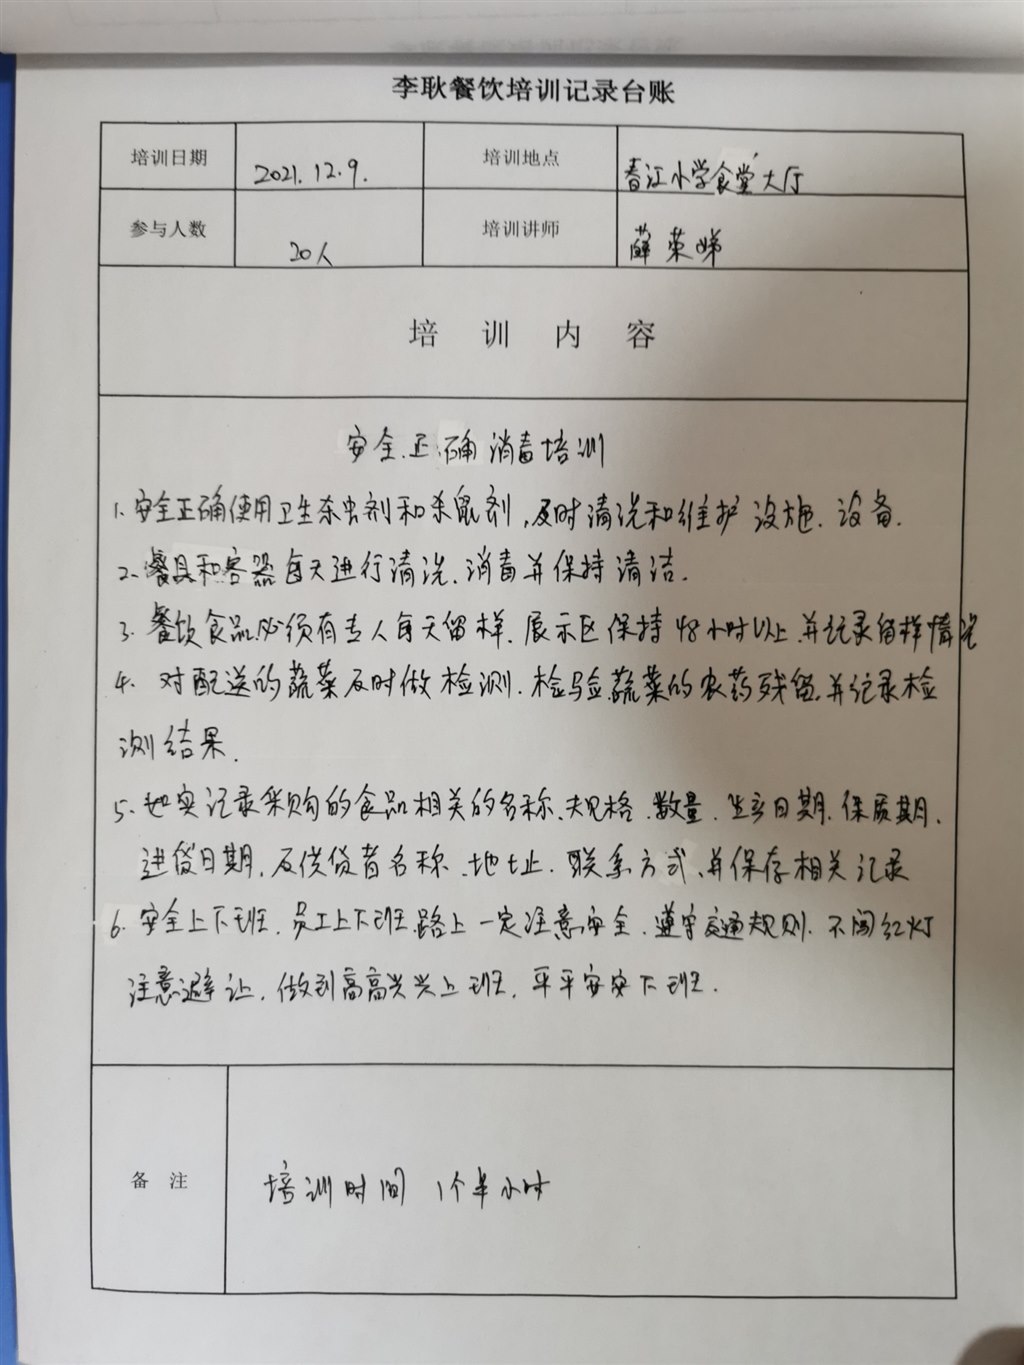 李耿餐饮培训记录台账
培训日期 2021.12.9. 培训地点 春江小学食堂大厅
参与人数 20人 培训讲师 薛荣娣
培训内容
安全、正确消毒培训
1、安全正确使用卫生杀虫剂和杀鼠剂,及时清洗和维护设施、设备.
2、餐具和容器每天进行清洗、消毒并保持清洁.
3、餐饮食品必须有专人每天留样、展示区保持48小时以上,并记录留样情况
4、对配送的蔬菜及时做检测、检验蔬菜的农药残留,并记录检
测结果.
5、如实记录采购的食品相关的名称、规格、数量、生产日期、保质期、
进货日期,及供货者名称、地址、联系方式,并保存相关记录
6、安全上下班,员工上下班路上一定注意安全,遵守交通规则,不闯红灯
注意避让,做到高高兴兴上班,平平安安下班.
备注 培训时间 1个半小时